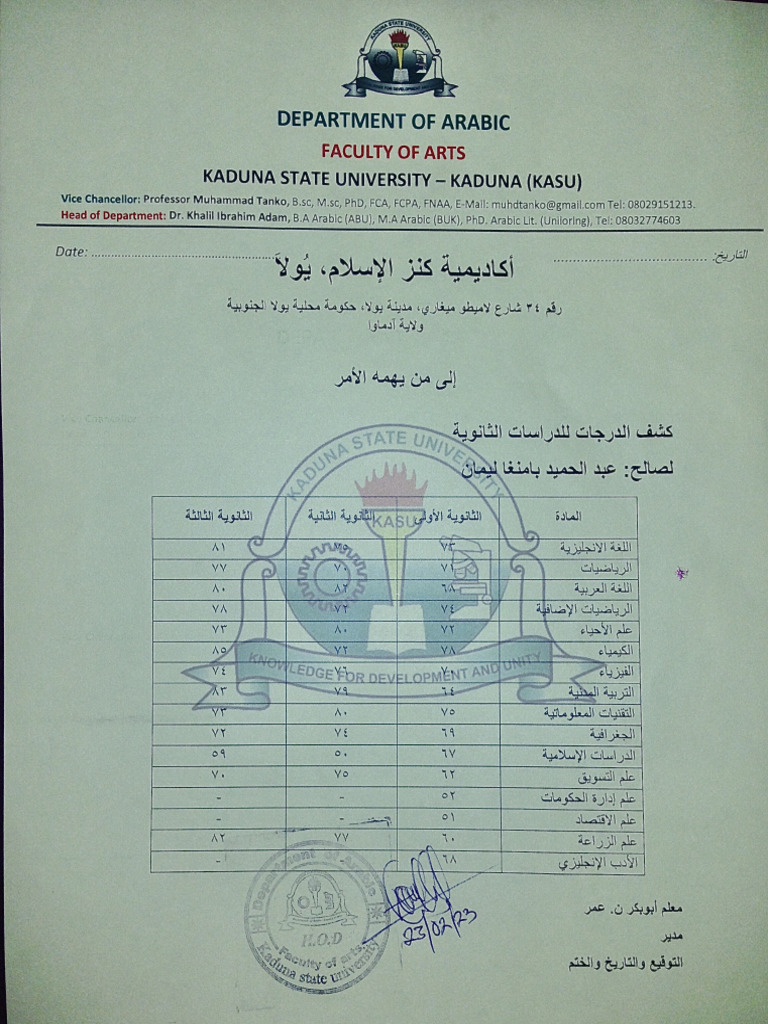 KADUNA STATE UNIVERSITY
KNOWLEDGE FOR DEVELOPMENT AND UNITY
DEPARTMENT OF ARABIC
FACULTY OF ARTS
KADUNA STATE UNIVERSITY – KADUNA (KASU)
Vice Chancellor: Professor Muhammad Tanko, B.sc, M.sc, PhD, FCA, FCPA, FNAA, E-Mail: muhdtanko@gmail.com Tel: 08029151213.
Head of Department: Dr. Khalil Ibrahim Adam, B.A Arabic (ABU), M.A Arabic (BUK), PhD. Arabic Lit. (Uniloring), Tel: 08032774603
Date: ........ التاريخ: ........
أكاديمية كنز الإسلام، يُولَا
رقم ٣٤ شارع لاميطو ميغاري، مدينة يولا، حكومة محلية يولا الجنوبية
ولاية آدماوا
إلى من يهمه الأمر
كشف الدرجات للدراسات الثانوية
لصالح: عبد الحميد بامنغا ليمان
KADUNA STATE UNIVERSITY
KASU
KNOWLEDGE FOR DEVELOPMENT AND UNITY
المادة الثانوية الأولى الثانوية الثانية الثانوية الثالثة
اللغة الانجليزية ٧٣ ٨١
الرياضيات ٧١ ٧٠ ٧٧
اللغة العربية ٦٨ ٨٢ ٨٠
الرياضيات الإضافية ٧٤ ٧٢ ٧٨
علم الأحياء ٧٢ ٨٠ ٧٣
الكيمياء ٧٨ ٧٢ ٨٥
الفيزياء ٧٠ ٧٦ ٧٤
التربية المدنية ٦٤ ٧٩ ٨٣
التقنيات المعلوماتية ٧٥ ٨٠ ٧٣
الجغرافية ٦٩ ٧٤ ٧٢
الدراسات الإسلامية ٦٧ ٥٠ ٥٩
علم التسويق ٦٢ ٧٥ ٧٠
علم إدارة الحكومات ٥٢ - -
علم الاقتصاد ٥١ - -
علم الزراعة ٦٠ ٧٧ ٨٢
الأدب الإنجليزي ٦٨ -
Department of Arabic
H.O.D
Faculty of arts
Kaduna state university
23/02/23
معلم أبوبكر ن. عمر
مدير
التوقيع والتاريخ والختم